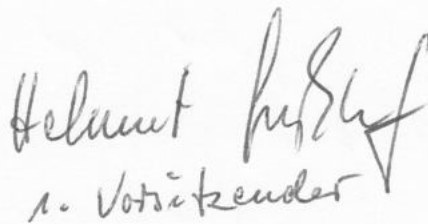 Helmut
1. Vorsitzender